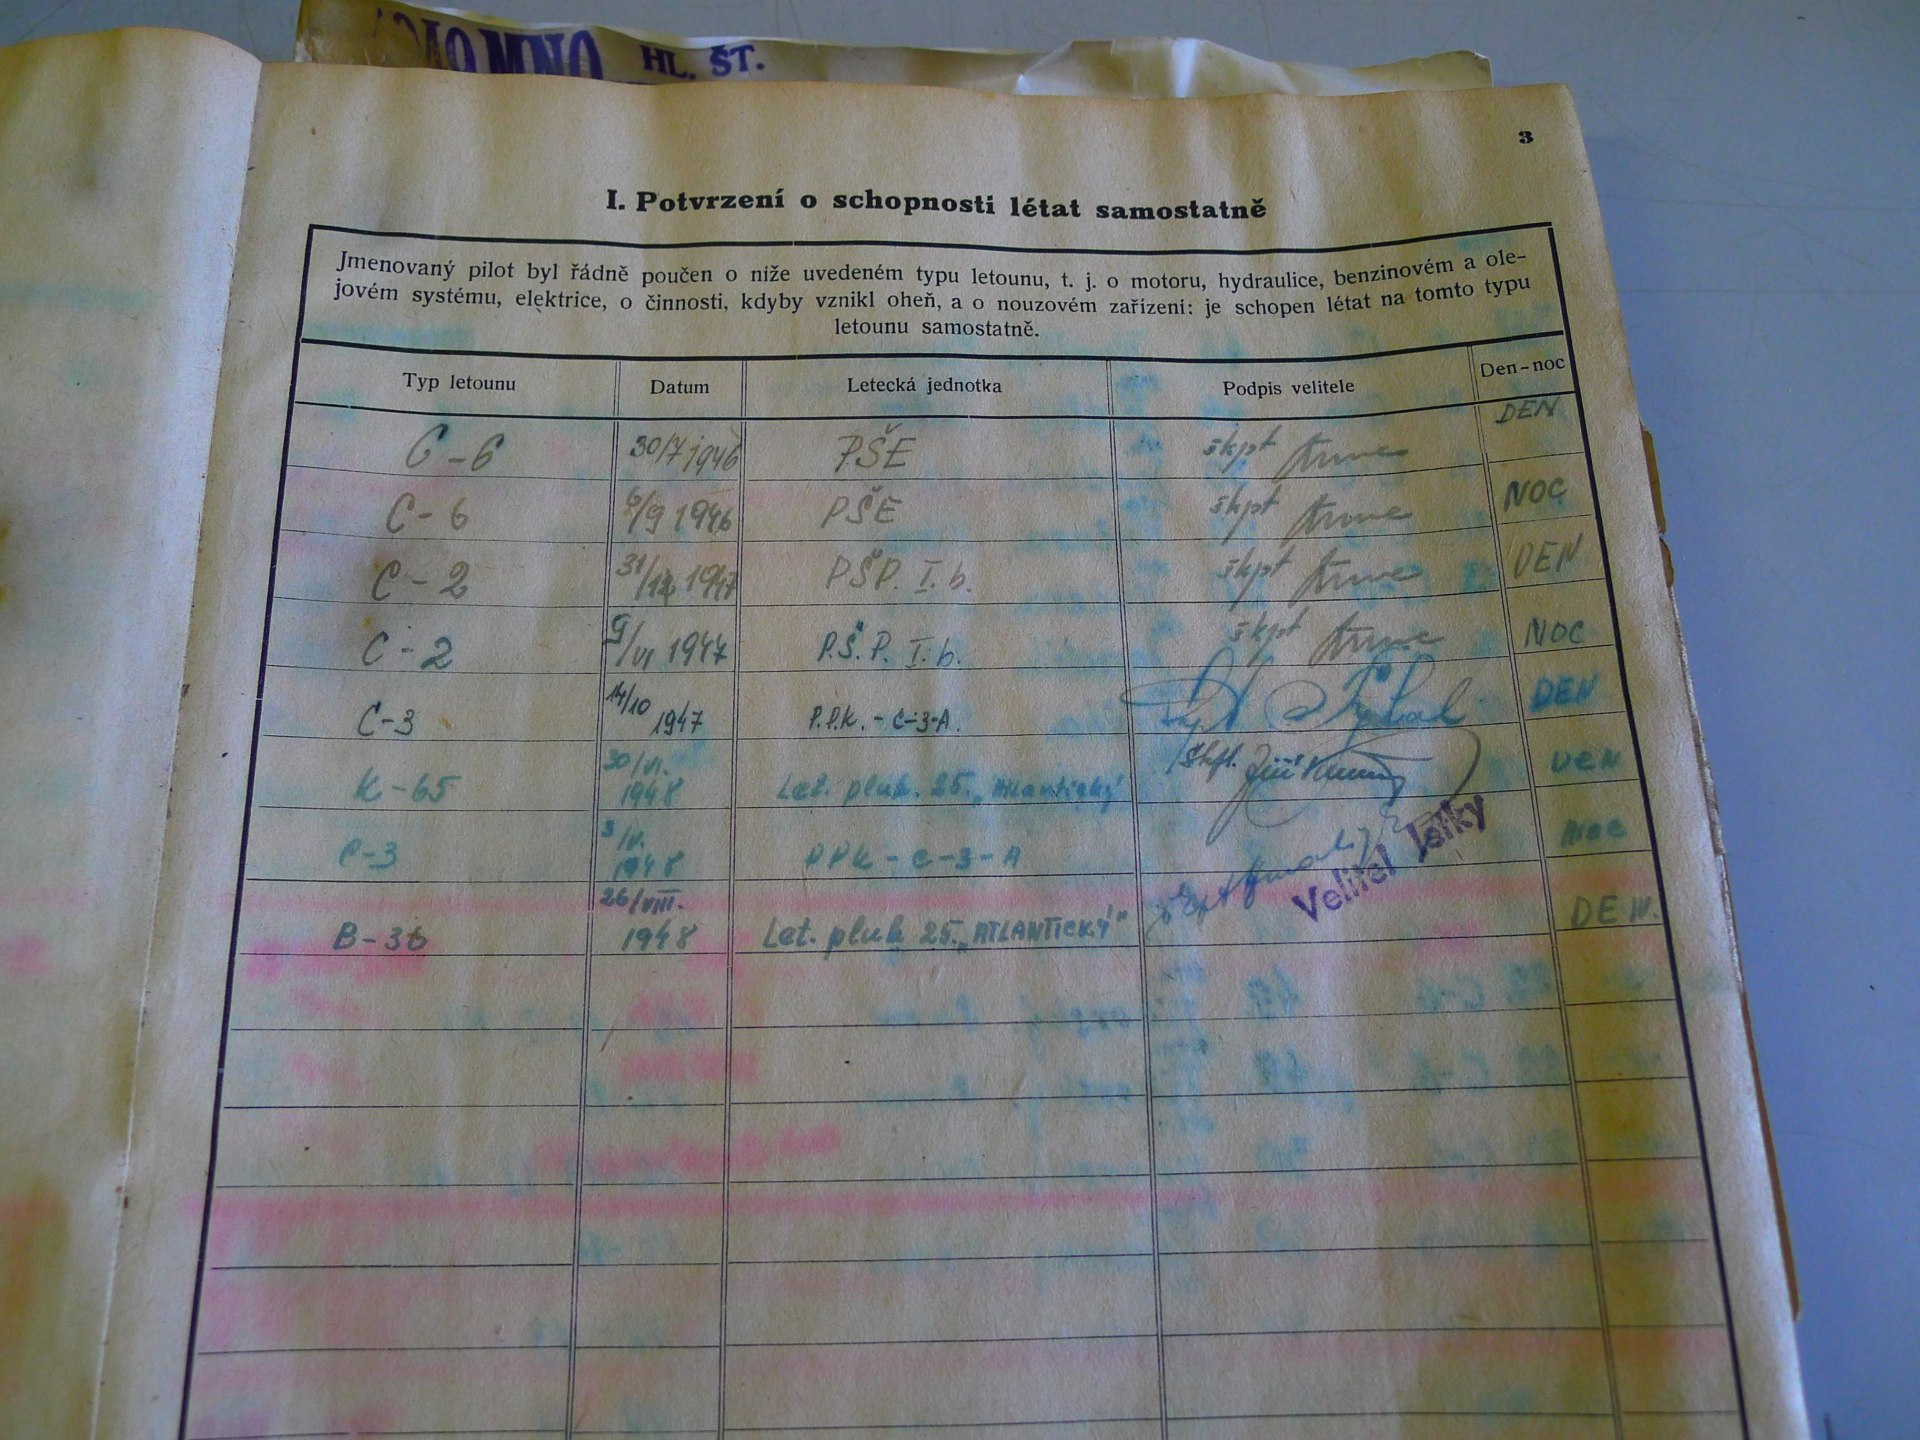 MNO HL. ŠT.
3
I. Potvrzení o schopnosti létat samostatně
Jmenovaný pilot byl řádně poučen o níže uvedeném typu letounu, t. j. o motoru, hydraulice, benzinovém a ole-
jovém systému, elektrice, o činnosti, kdyby vznikl oheň, a o nouzovém zařízení: je schopen létat na tomto typu
letounu samostatně.
Typ letounu Datum Letecká jednotka Podpis velitele Den-noc
C-6 30/7 1946 PŠE škpt DEN
C-6 6/9 1946 PŠE škpt NOC
C-2 31/ 1947 PŠP. I. b. škpt DEN
C-2 9/VI 1947 P.Š.P. I. b. škpt NOC
C-3 14/10 1947 P.P.K. - C-3-A. DEN
K-65 30/VI. 1948 Let. pluk. 25. „Atlantický" škpt. Jiří DEN
C-3 3/V. 1948 PPK - C-3-A Noc
B-36 26/VIII. 1948 Let. pluk 25. „ATLANTICKÝ" Velitel letky DEN.